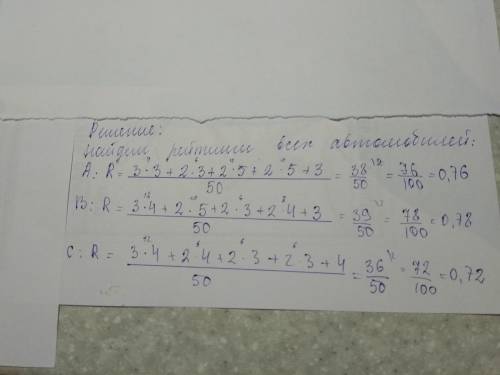 Решение:
Найдём рейтинги всех автомобилей:
A: R = (3·3+2·3+2·5+2·5+3)/50 = 38/50 = 76/100 = 0,76
B: R = (3·4+2·5+2·3+2·4+3)/50 = 39/50 = 78/100 = 0,78
C: R = (3·4+2·4+2·3+2·3+4)/50 = 36/50 = 72/100 = 0,72